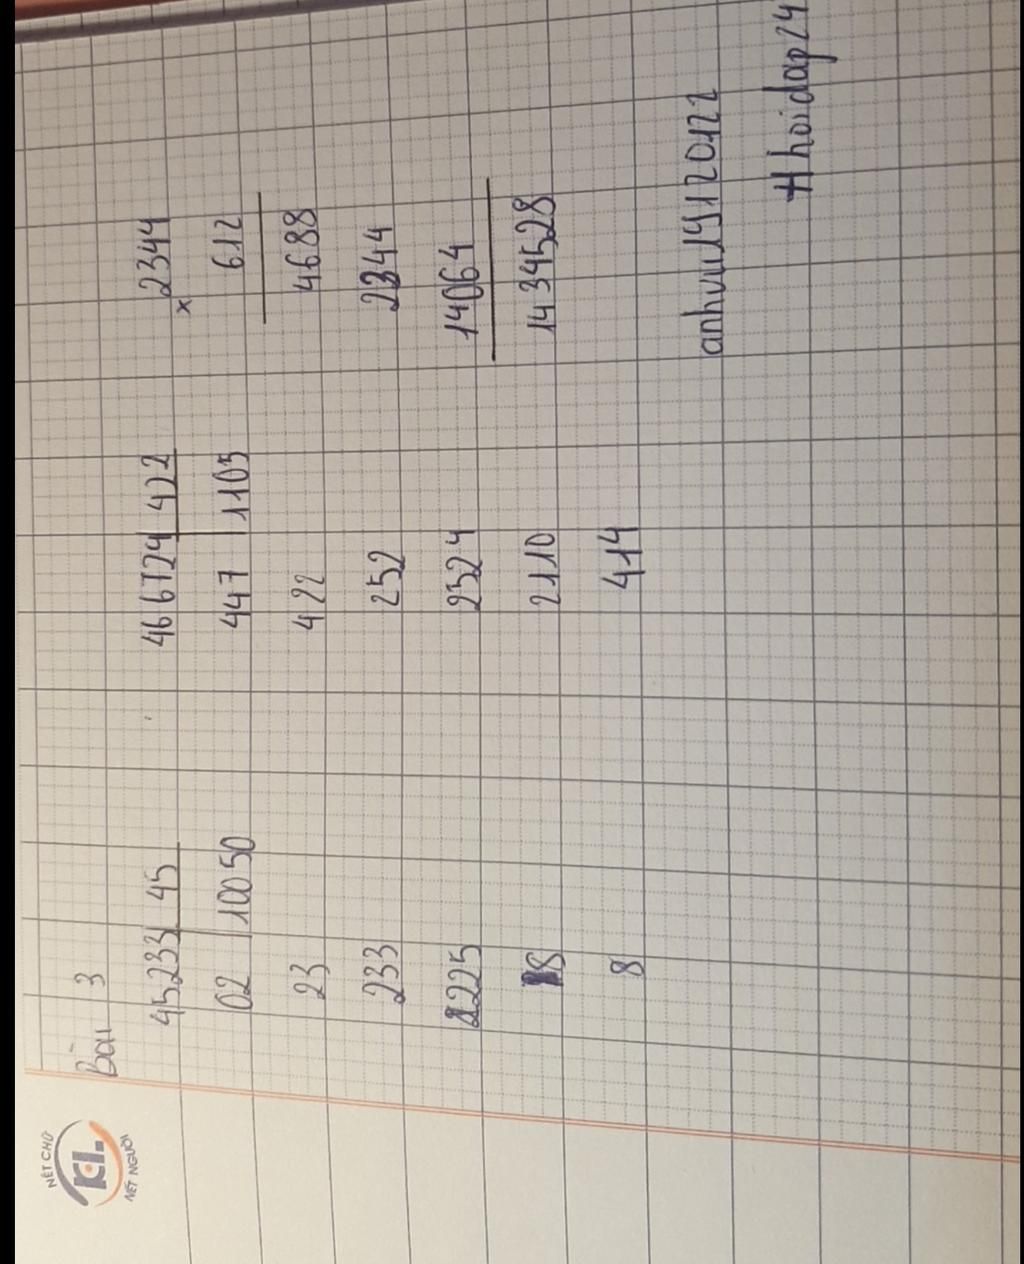 NÉT CHỮ
KL
NẾT NGƯỜI
Bài 3
45233 45
02 10050
23
233
2225
8
8
466724 422
447 1105
422
252
2524
2110
414
2344
×
612
4688
2344
14064
1434528
anhvu19120122
#hoidap24